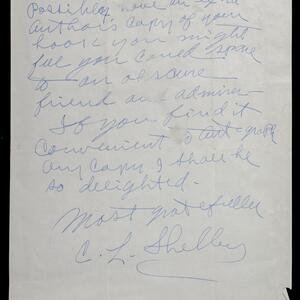 Possibly have an extra
author's copy of your
book you might
feel you could spare
to an obscure
friend and admirer
If you find it
convenient to autograph
any copy I shall be
so delighted.
Most gratefully
C. L. Shelley